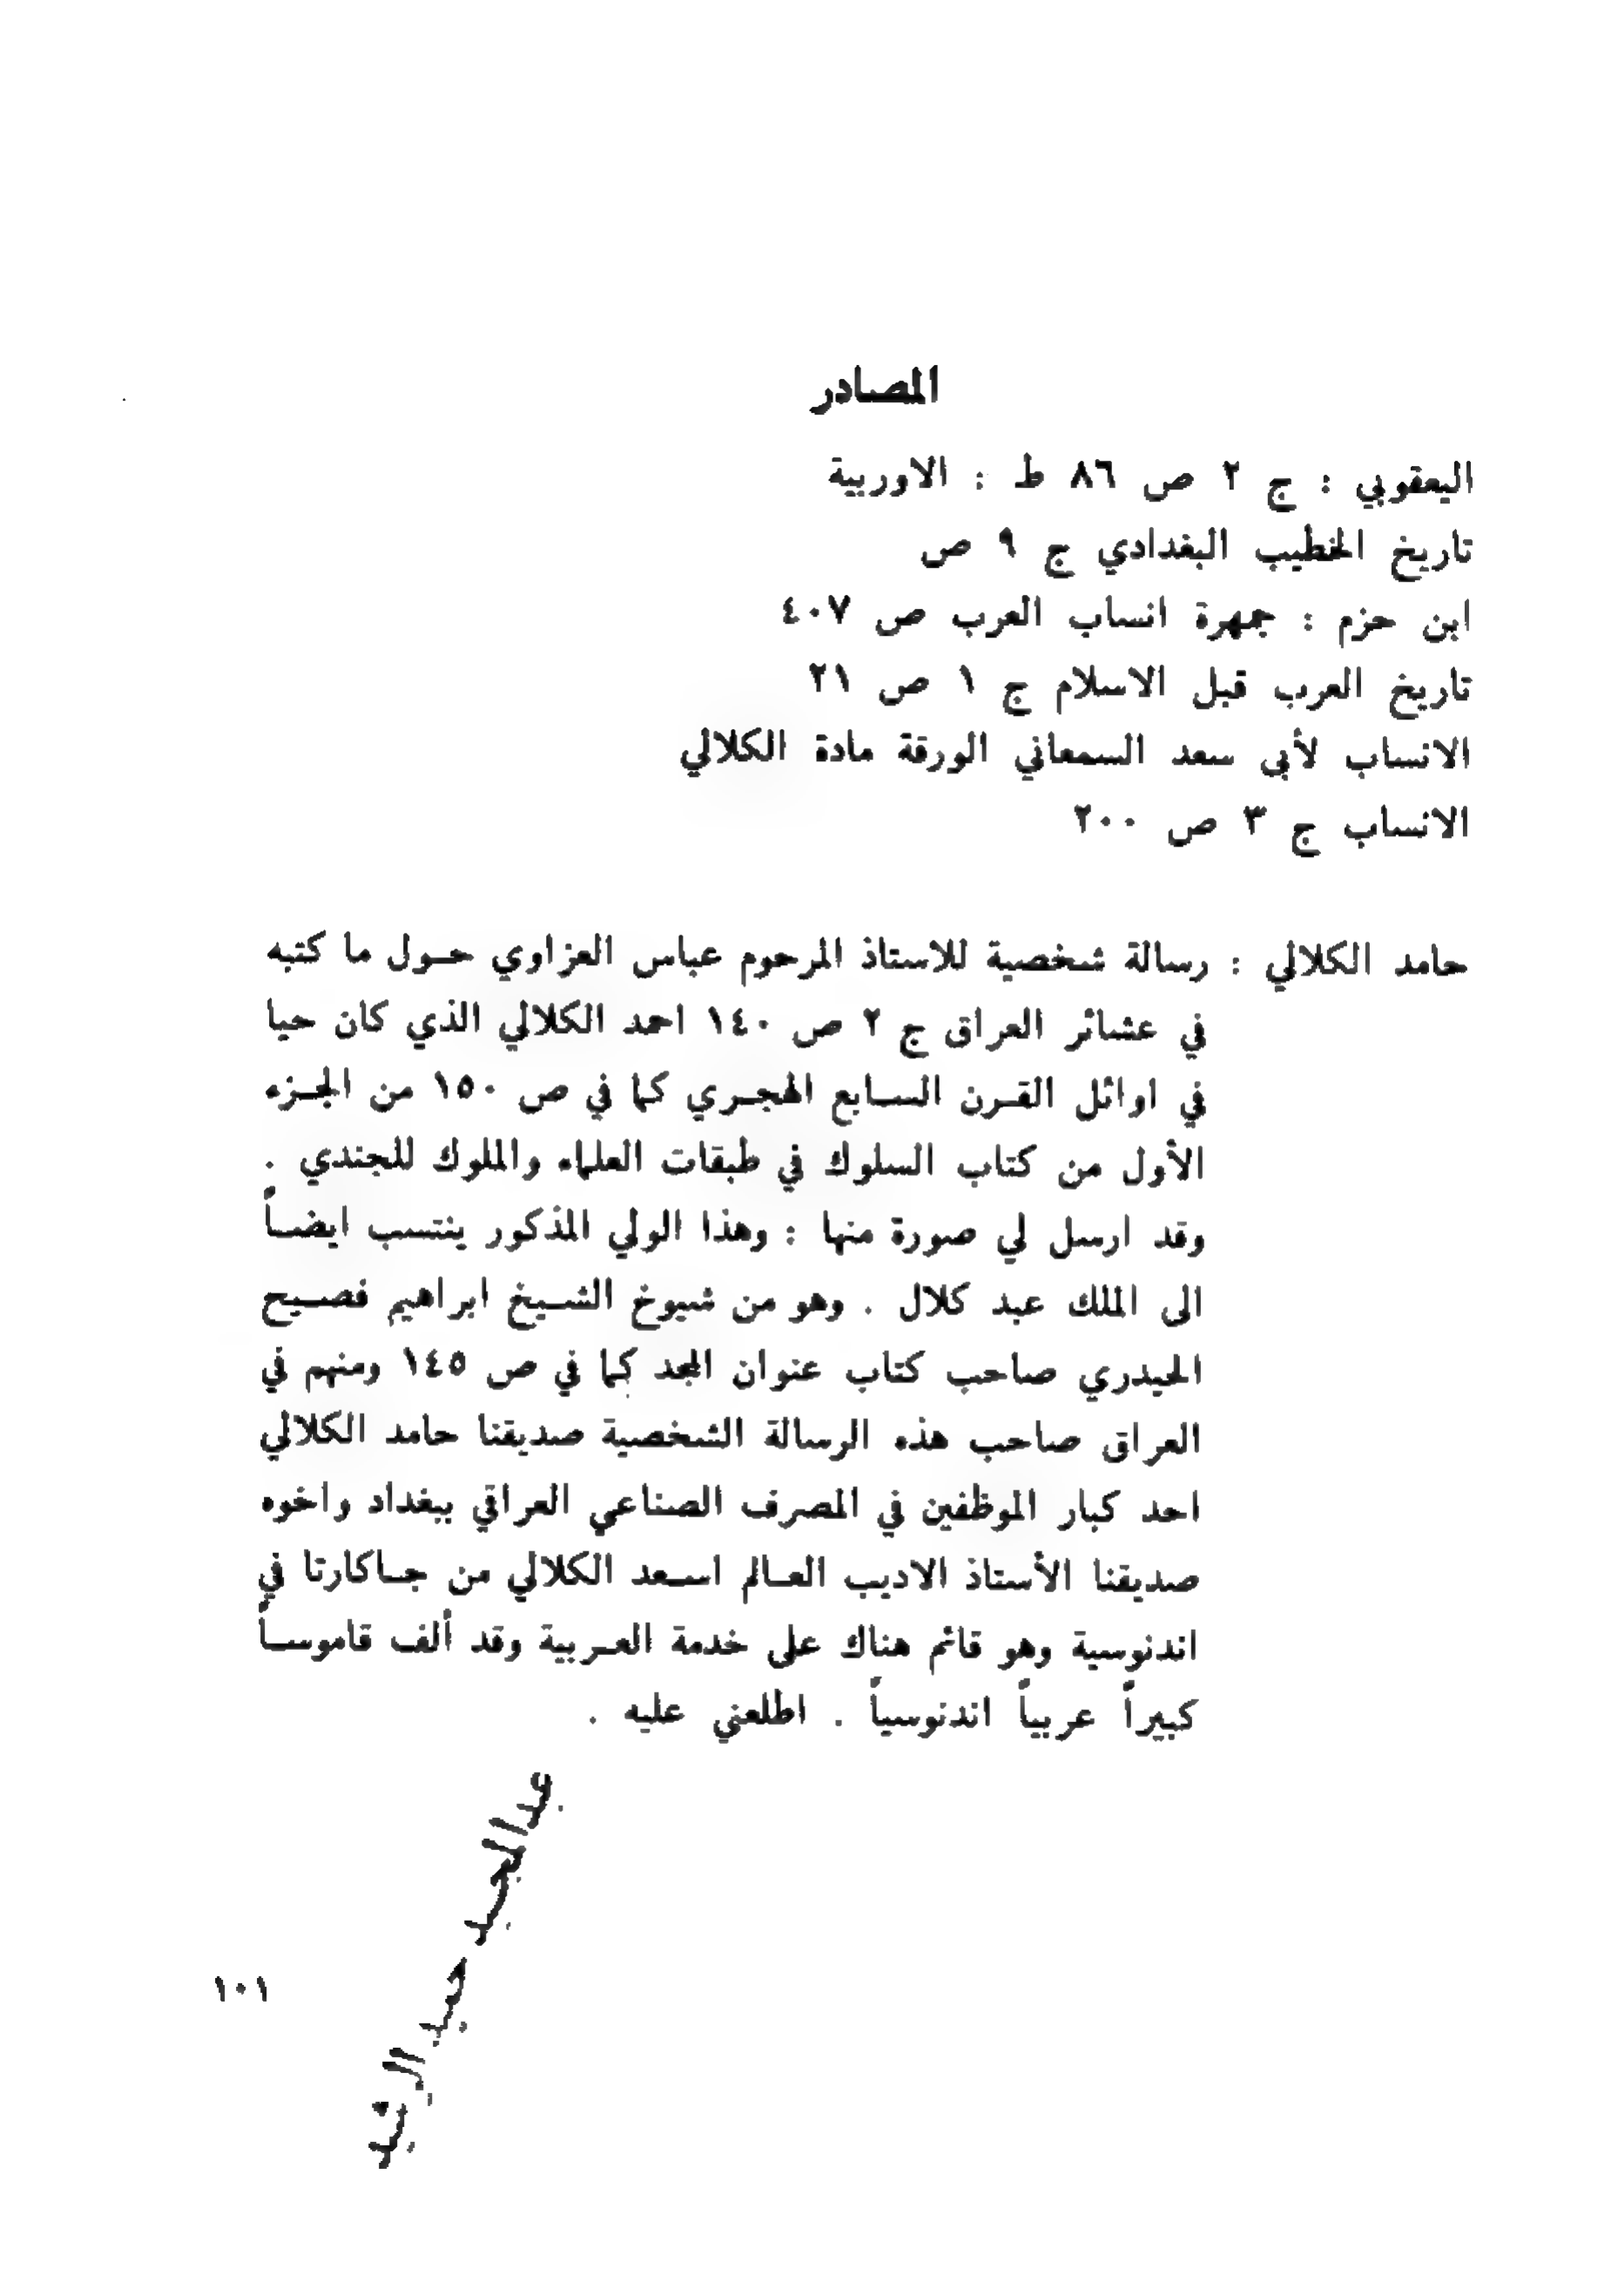 المصادر
اليعقوبي : ج ٢ ص ٨٦ ط : الاوربية
تاريخ الخطيب البغدادي ج ٩ ص
ابن حزم : جمهرة انساب العرب ص ٤٠٧
تاريخ العرب قبل الاسلام ج ١ ص ٢١
الانساب لأبي سعد السمعاني الورقة مادة الكلالي
الانساب ج ٣ ص ٢٠٠
حامد الكلالي : رسالة شخصية للاستاذ المرحوم عباس العزاوي حول ما كتبه
في عشائر العراق ج ٢ ص ١٤٠ احمد الكلالي الذي كان حيا
في اوائل القرن السابع الهجري كما في ص ١٥٠ من الجزء
الأول من كتاب السلوك في طبقات العلماء والملوك للجندي .
وقد ارسل لي صورة منها : وهذا الولي المذكور ينتسب ايضاً
الى الملك عبد كلال . وهو من شيوخ الشيخ ابراهيم فصيح
الحيدري صاحب كتاب عنوان المجد كما في ص ١٤٥ ومنهم في
العراق صاحب هذه الرسالة الشخصية صديقنا حامد الكلالي
احد كبار الموظفين في المصرف الصناعي العراقي ببغداد واخوه
صديقنا الأستاذ الاديب العالم اسعد الكلالي من جاكارتا في
اندنوسية وهو قائم هناك على خدمة العربية وقد ألف قاموساً
كبيراً عربياً اندنوسياً . اطلعني عليه .
عبدالمجيد حميد الرشيد
١٠١